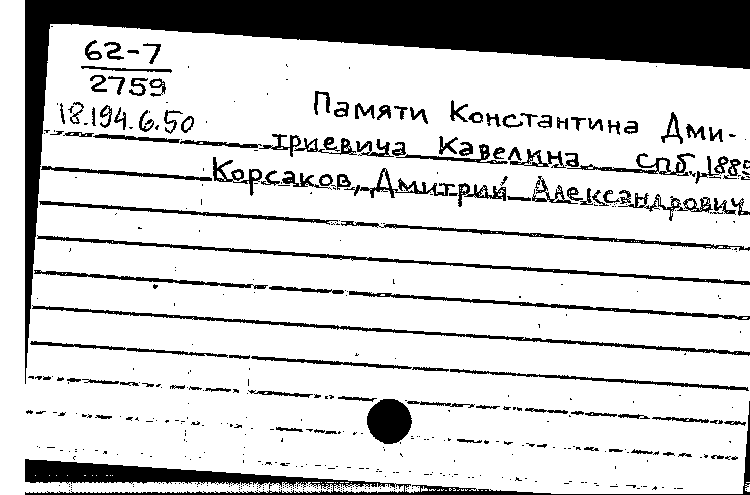 62-7
2759
18.194.6.50
Памяти Константина Дми-
триевича Кавелина. Спб., 1885
Корсаков, Дмитрий Александрович